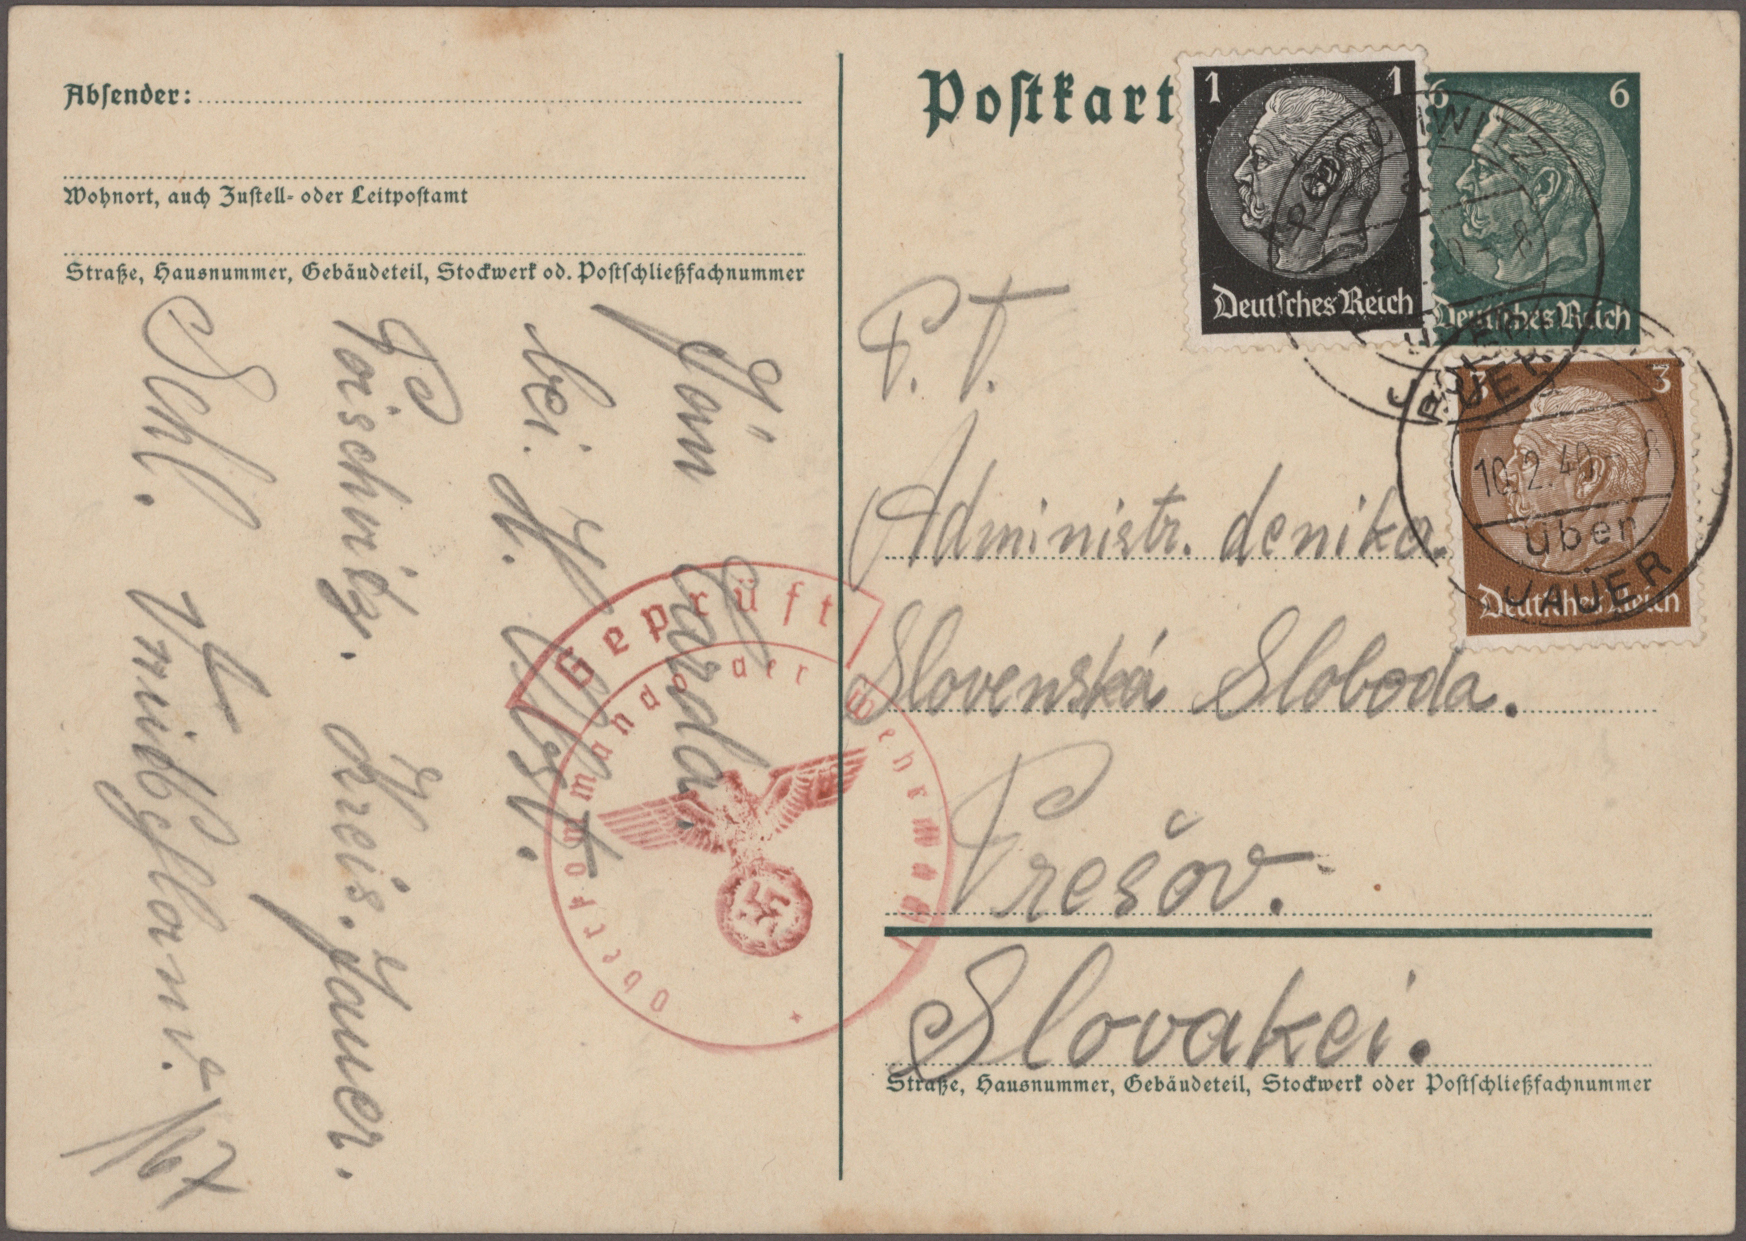 Absender:
Wohnort, auch Zustell- oder Leitpostamt
Straße, Hausnummer, Gebäudeteil, Stockwerk od. Postschließfachnummer
Ján Čarda.
bei H.
Poischwitz. Kreis. Jauer.
Schl.
Postkart
1 1
Deutsches Reich
6 6
Deutsches Reich
3 3
Deutsches Reich
POISCHWITZ
über
JAUER
10.2.40 - 8
über
JAUER
P. T.
Administr. denika.
Slovenská Sloboda.
Prešov.
Slovakei.
Straße, Hausnummer, Gebäudeteil, Stockwerk oder Postschließfachnummer
Geprüft
Oberkommando der Wehrmacht